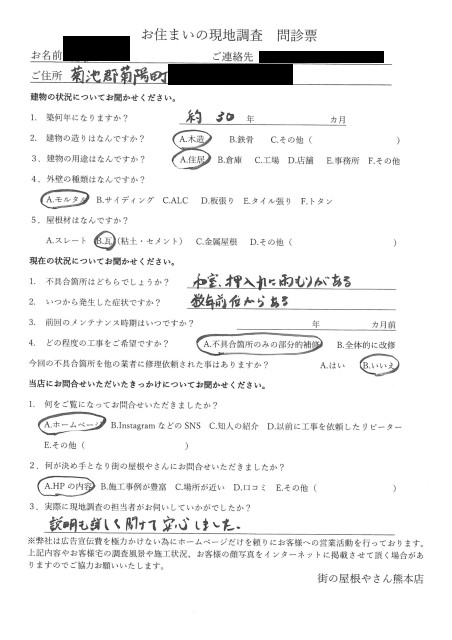 お住まいの現地調査　問診票
お名前　　　　　ご連絡先
ご住所　菊池郡菊陽町
建物の状況についてお聞かせください。
1．築何年になりますか？　約 30 年　　　カ月
2．建物の造りはなんですか？　A.木造　B.鉄骨　C.その他（　　　　　）
3、建物の用途はなんですか？　A.住居　B.倉庫　C.工場　D.店舗　E.事務所　F.その他
4、外壁の種類はなんですか？
A.モルタル　B.サイディング　C.ALC　D.板張り　E.タイル張り　F.トタン
5、屋根材はなんですか？
A.スレート　B.瓦（粘土・セメント）　C.金属屋根　D.その他（　　　　　）
現在の状況についてお聞かせください。
1．不具合箇所はどちらでしょうか？　和室、押入れに雨もりがある
2．いつから発生した症状ですか？　数年前位からある
3．前回のメンテナンス時期はいつですか？　　　年　　　カ月前
4．どの程度の工事をご希望ですか？　A.不具合箇所のみの部分的補修　B.全体的に改修
今回の不具合箇所を他の業者に修理依頼された事はありますか？　A.はい　B.いいえ
当店にお問合せいただいたきっかけについてお聞かせください。
1．何をご覧になってお問合せいただきましたか？
A.ホームページ　B.Instagram などの SNS　C.知人の紹介　D.以前に工事を依頼したリピーター
E.その他（　　　　　）
2．何が決め手となり街の屋根やさんにお問合せいただきましたか？
A.HP の内容　B.施工事例が豊富　C.場所が近い　D.口コミ　E.その他（　　　　　）
3．実際に現地調査の担当者がお伺いしていかがでしたか？
説明も詳しく聞けて安心しました。
※弊社は広告宣伝費を極力かけない為にホームページだけを頼りにお客様への営業活動を行っております。
上記内容やお客様宅の調査風景や施工状況、お客様の顔写真をインターネットに掲載させて頂く場合があ
りますのでご協力お願いいたします。
街の屋根やさん熊本店